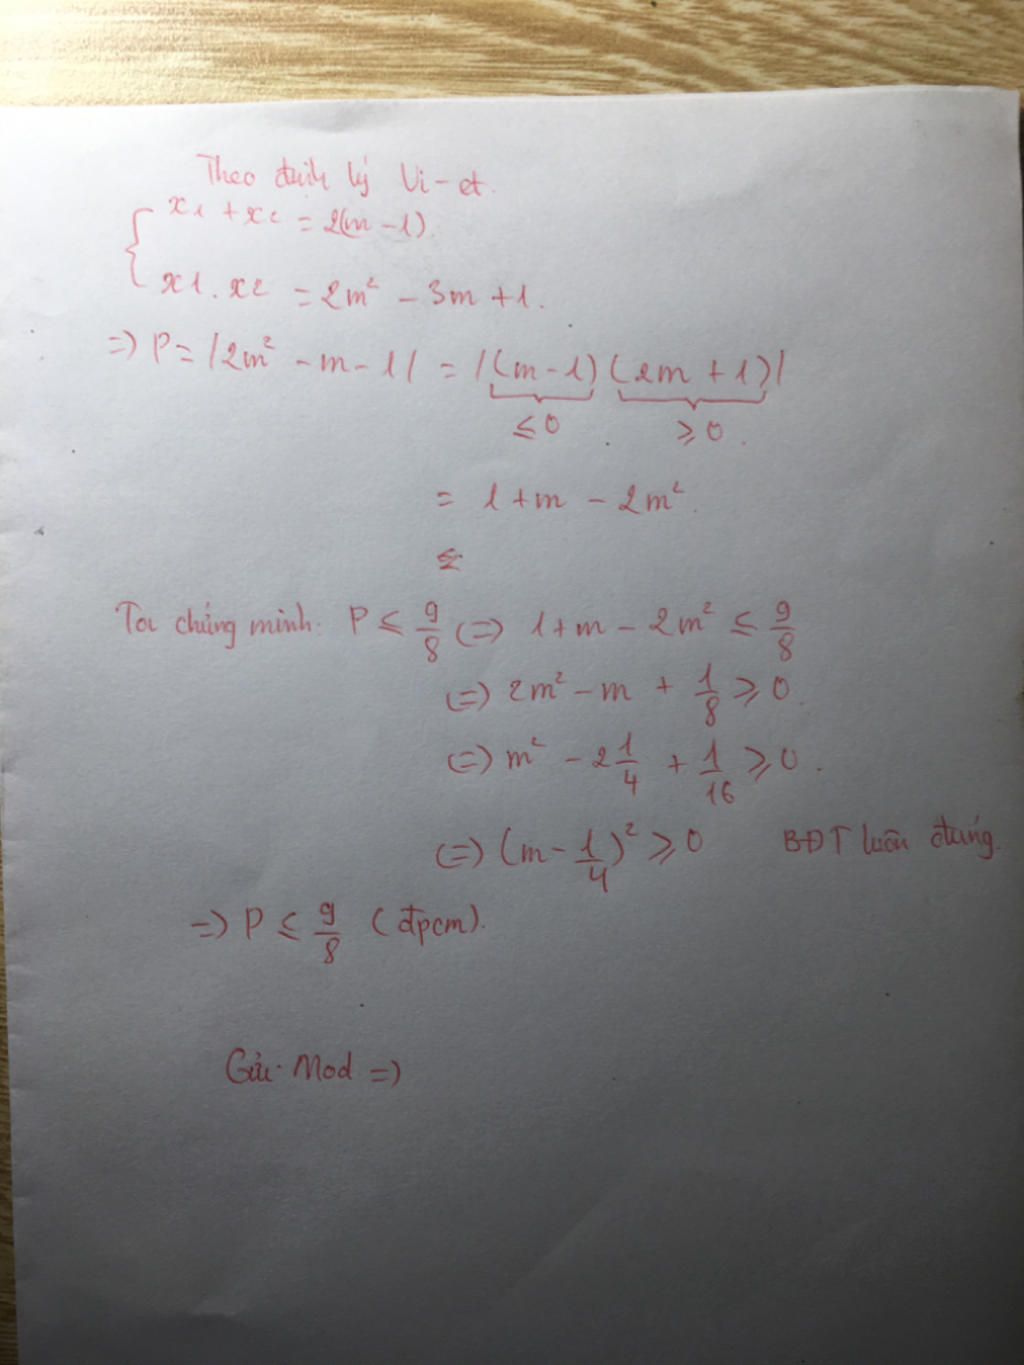 Theo định lý Vi-et.
x1 + x2 = 2(m - 1).
x1 . x2 = 2m² - 3m + 1.
=> P = |2m² - m - 1| = |(m - 1) (2m + 1)|
≤ 0 ≥ 0.
= 1 + m - 2m².
≤
Ta chứng minh: P ≤ 9/8 (=) 1 + m - 2m² ≤ 9/8
(=) 2m² - m + 1/8 ≥ 0.
(=) m² - 2 1/4 + 1/16 ≥ 0.
(=) (m - 1/4)² ≥ 0 BĐT luôn đúng.
=> P ≤ 9/8 (đpcm).
Gửi Mod =)